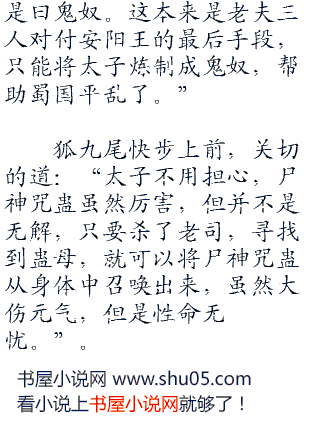 是曰鬼奴。这本来是老夫三
人对付安阳王的最后手段，
只能将太子炼制成鬼奴，帮
助蜀国平乱了。”
狐九尾快步上前，关切
的道：“太子不用担心，尸
神咒蛊虽然厉害，但并不是
无解，只要杀了老司，寻找
到蛊母，就可以将尸神咒蛊
从身体中召唤出来，虽然大
伤元气，但是性命无
忧。”。
书屋小说网 www.shu05.com
看小说上书屋小说网就够了！